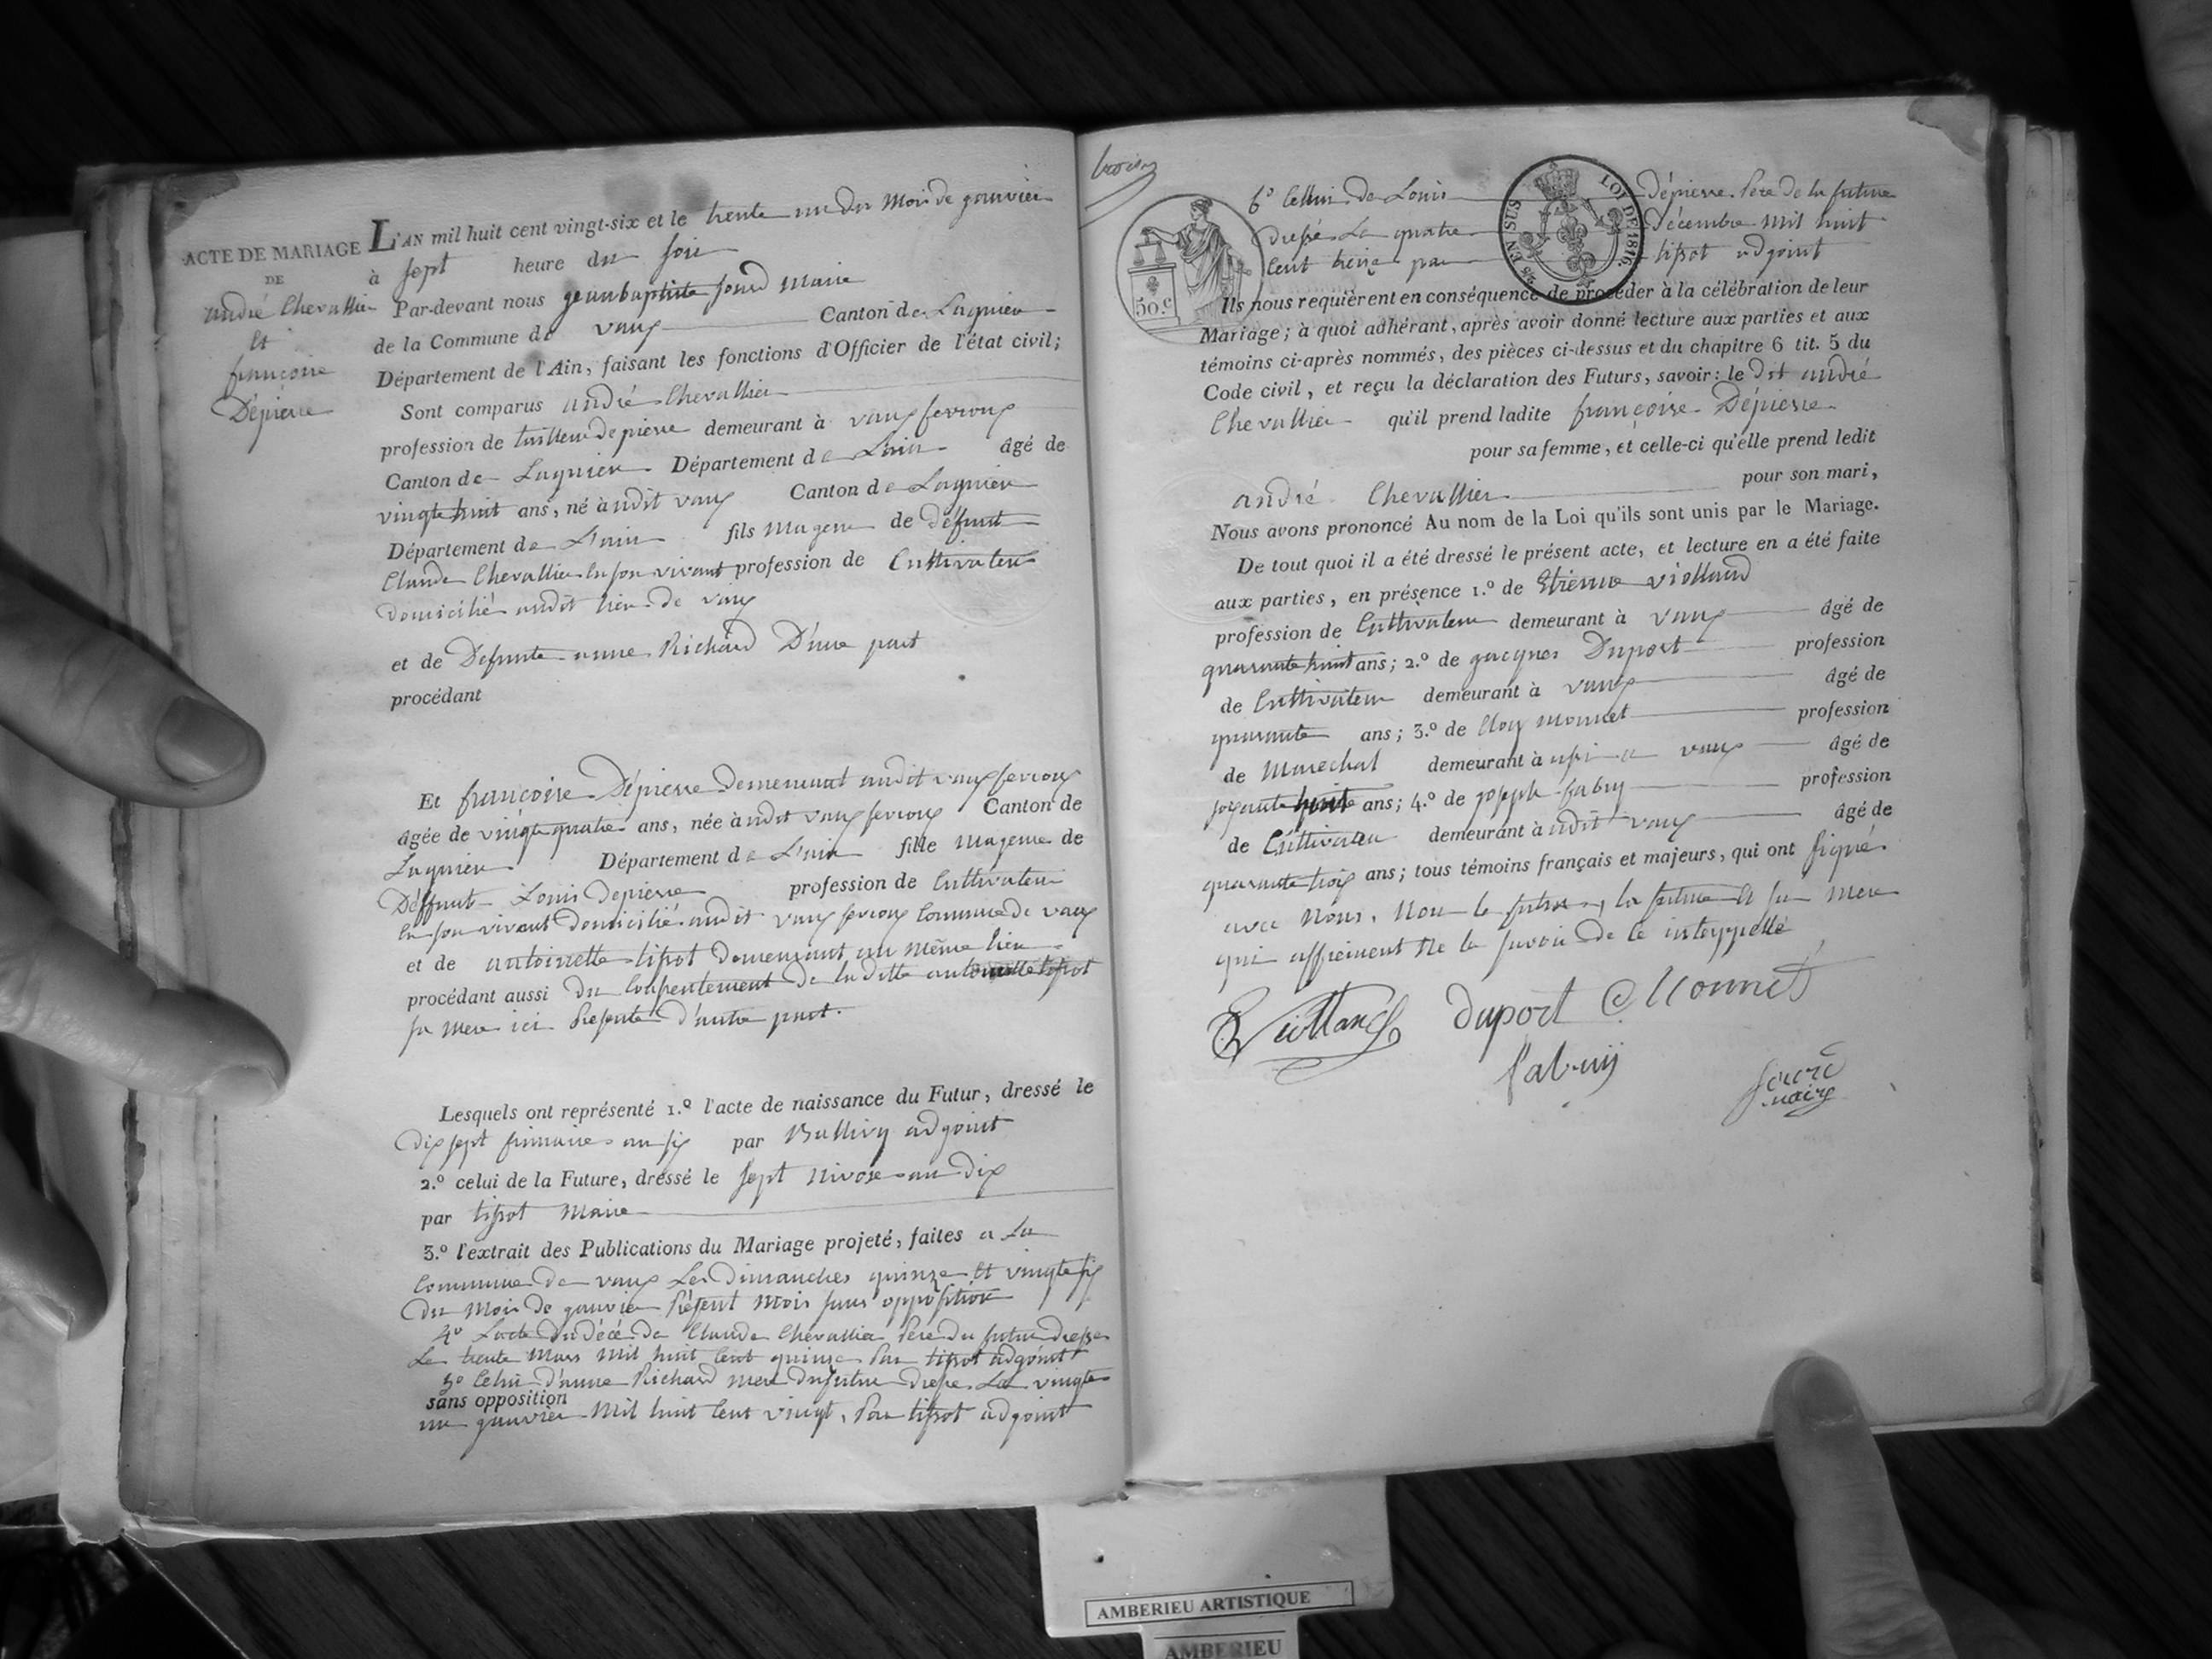 ACTE DE MARIAGE
DE
andré Chevallier
Et
françoise
Dépierre
L'AN mil huit cent vingt-six et le trente un du Mois de janvier
à sept heure du soir
Par-devant nous jeanbaptiste Maire
de la Commune de vaux Canton de Lagnieu
Département de l'Ain, faisant les fonctions d'Officier de l'état civil;
Sont comparus andré Chevallier
profession de tailleur de pierre demeurant à vaux fevroux
Canton de Lagnieu Département de L'ain âgé de
vingt huit ans, né audit vaux Canton de Lagnieu
Département de L'ain fils Majeur de défunt
Claude Chevallier En son vivant profession de Cultivateur
domicilié audit lieu de vaux
et de Defunte anne Richard D'une part
procédant
Et françoise Dépierre demeurant audit vaux fevroux
âgée de vingt quatre ans, née audit vaux fevroux Canton de
Lagnieu Département de L'ain fille Majeure de
Deffunt Louis Depierre profession de Cultivateur
En son vivant domicilié audit vaux fevroux Commune de vaux
et de antoinette tissot demeurant au même lieu
procédant aussi du Consentement de laditte antoinette tissot
sa Mere ici Presente d'autre part.
Lesquels ont représenté 1.º l'acte de naissance du Futur, dressé le
dix sept frimaire an six par Ballivy adjoint
2.º celui de la Future, dressé le sept Nivose an dix
par tissot Maire
3.º l'extrait des Publications du Mariage projeté, faites a La
Commune de vaux Les Dimanches quinze Et vingt six
du Mois de janvier Présent Mois sans opposition
4º Lacte du décé de Claude Chevallier Pere du futur dressé
Le trente Mars Mil huit Cent quinze Par tissot adjoint
5º Celui d'anne Richard mere du futur dressé Le vingt
sans opposition
un janvier Mil huit Cent vingt, Par tissot adjoint
50.c
25 EN SUS
LOI DE 1816.
6º Cellui de Louis Dépierre Pere de la future
dressé Le quatre Décembre Mil huit
Cent treize par tissot adjoint
Ils nous requièrent en conséquence de procéder à la célébration de leur
Mariage; à quoi adhérant, après avoir donné lecture aux parties et aux
témoins ci-après nommés, des pièces ci-dessus et du chapitre 6 tit. 5 du
Code civil, et reçu la déclaration des Futurs, savoir: le dit andré
Chevallier qu'il prend ladite françoise Dépierre
pour sa femme, et celle-ci qu'elle prend ledit
andré Chevallier pour son mari,
Nous avons prononcé Au nom de la Loi qu'ils sont unis par le Mariage.
De tout quoi il a été dressé le présent acte, et lecture en a été faite
aux parties, en présence 1.º de Etienne violland
profession de Cultivateur demeurant à vaux âgé de
quarante huit ans; 2.º de jacques Duport profession
de Cultivateur demeurant à vaux âgé de
quarante ans; 3.º de Cloy Monnet profession
de Marechal demeurant à a vaux âgé de
soixante huit ans; 4.º de joseph fabry profession
de Cultivateur demeurant à udit vaux âgé de
quarante trois ans; tous témoins français et majeurs, qui ont signé
avec Nous, Non le futur, la future Et sa Mere
qui affirment Ne le savoir de Ce interppellé
Violland Duport C Monnet
fabry
maire
AMBERIEU ARTISTIQUE
AMBERIEU